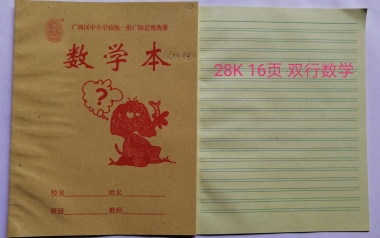 广西区中小学校统一推广防近视海册
数学本
校名 姓名
班级 教师
28K 16页 双行数学